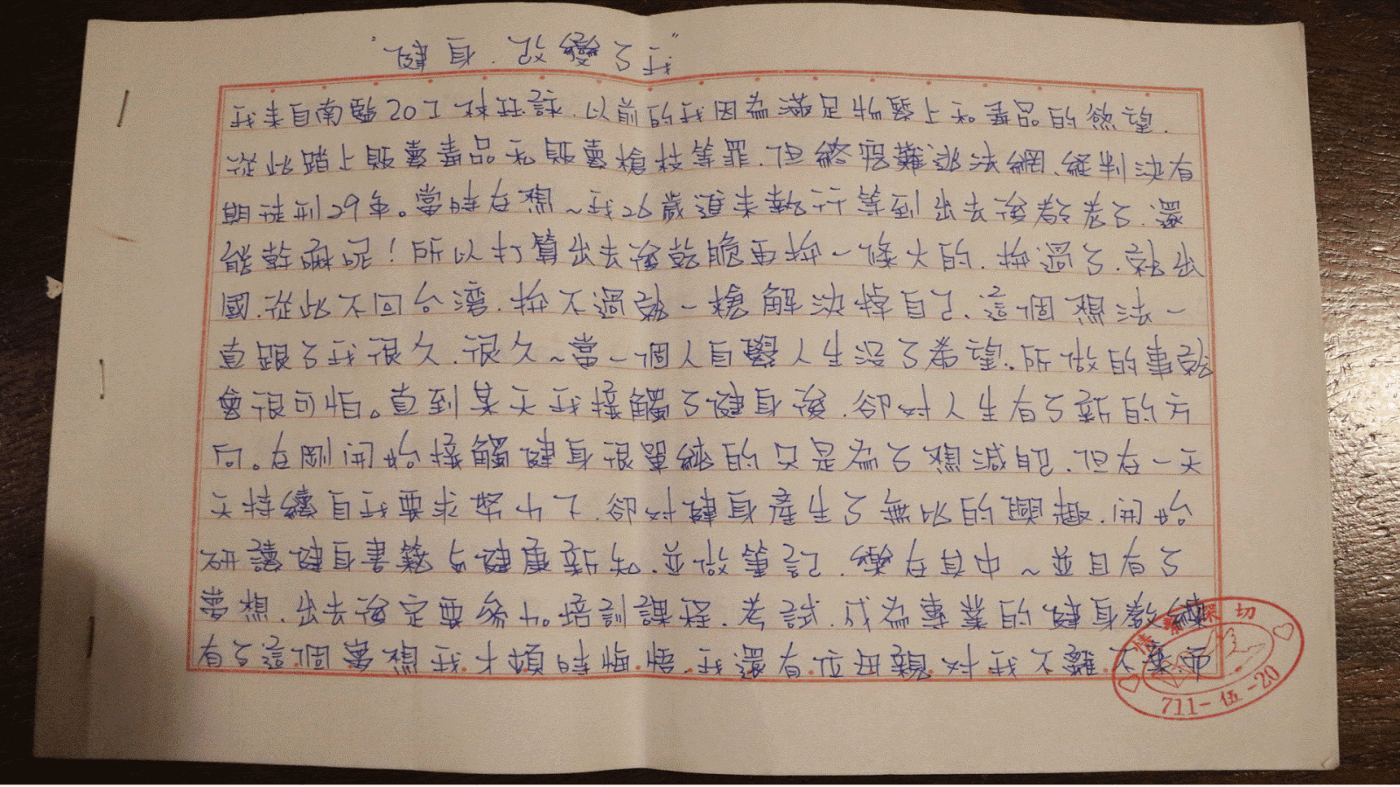 健身.改變了我
我來自南監20工林,以前的我因為滿足物質上和毒品的慾望,
從此踏上販賣毒品和販賣槍枝等罪,但終究難逃法網,經判決有
期徒刑29年。當時在想~我26歲進來執行等到出去後都老了,還
能幹嘛呢!所以打算出去後乾脆再拚一條大的,拚過了,就出
國,從此不回台灣,拚不過就一槍解決掉自己,這個想法一
直跟了我很久,很久~當一個人自覺人生沒了希望,所做的事就
會很可怕。直到某天我接觸了健身後,卻對人生有了新的方
向。在剛開始接觸健身很單純的只是為了想減肥,就在一天
天持續自我要求當中,卻對健身產生了無比的興趣,開始
研讀健身書籍與健康新知,並做筆記,樂在其中~並且有了
夢想,出去後定要參加培訓課程,考試,成為專業的健身教練
有了這個夢想我不
深切
711-伍-20